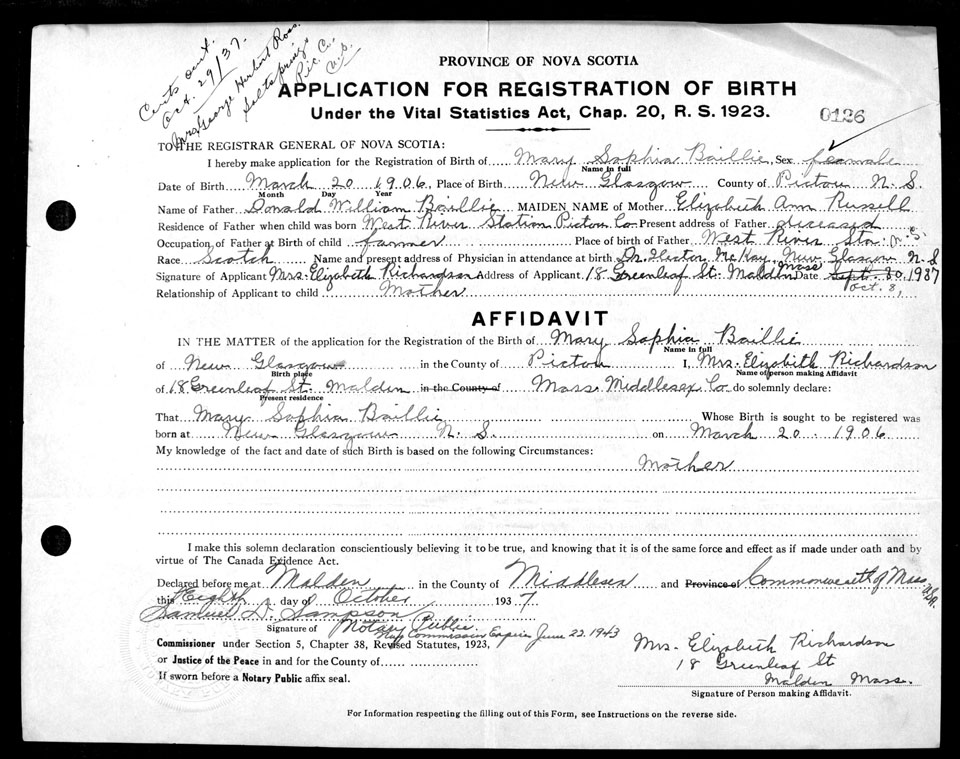 Certs out.
Oct. 29/37.
Mrs George Herbert Ross.
Saltsprings
Pic. Co.
N.S.
PROVINCE OF NOVA SCOTIA
APPLICATION FOR REGISTRATION OF BIRTH
Under the Vital Statistics Act, Chap. 20, R. S. 1923.
0126
TO THE REGISTRAR GENERAL OF NOVA SCOTIA:
I hereby make application for the Registration of Birth of Mary Sophia Baillie, Sex female
Name in full
Date of Birth March 20 1906, Place of Birth New Glasgow County of Pictou N. S.
Month Day Year
Name of Father Donald William Baillie MAIDEN NAME of Mother Elizabeth Ann Russell
Residence of Father when child was born West River Station Pictou Co Present address of Father diseased
Occupation of Father at Birth of child farmer Place of birth of Father West River Sta. N. S
Race Scotch Name and present address of Physician in attendance at birth Dr. McKay, New Glasgow N. S
Signature of Applicant Mrs. Elizabeth Richardson Address of Applicant 18 Greenleaf St. Malden Mass Date Sept. 30, 1937
Oct. 8,
Relationship of Applicant to child Mother
AFFIDAVIT
IN THE MATTER of the application for the Registration of the Birth of Mary Sophia Baillie
Name in full
of New Glasgow in the County of Pictou I, Mrs. Elizabeth Richardson
Birth place Name of person making Affidavit
of 18 Greenleaf St. Malden in the County of Mass. Middlesex Co do solemnly declare:
Present residence
That Mary Sophia Baillie Whose Birth is sought to be registered was
born at New Glasgow N. S. on March 20. 1906
My knowledge of the fact and date of such Birth is based on the following Circumstances:
Mother
I make this solemn declaration conscientiously believing it to be true, and knowing that it is of the same force and effect as if made under oath and by
virtue of The Canada Evidence Act.
Declared before me at Malden in the County of Middlesex and Province of Commonwealth of Mass
this Eighth day of October 1937
Samuel D. Sampson
Signature of Notary Public
My Commission Expires June 22. 1943
Commissioner under Section 5, Chapter 38, Revised Statutes, 1923,
or Justice of the Peace in and for the County of
If sworn before a Notary Public affix seal.
Mrs. Elizabeth Richardson
18 Greenleaf St
Malden Mass.
Signature of Person making Affidavit.
For Information respecting the filling out of this Form, see Instructions on the reverse side.